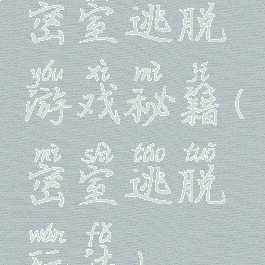 密室逃脱
yóu xì mì jí
游戏秘籍(
mì shì táo tuō
密室逃脱
wán fǎ
玩法)